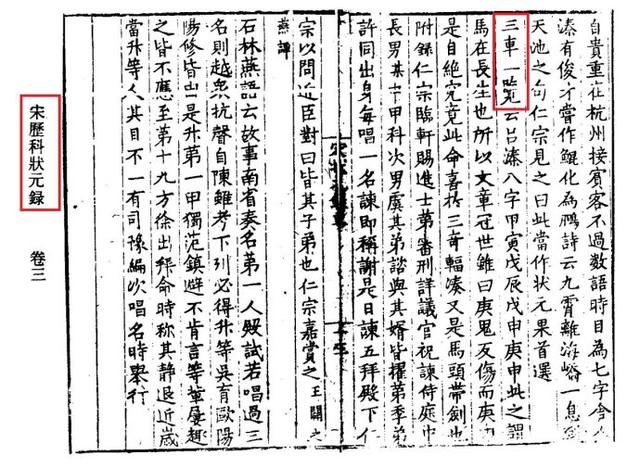 自貴重在杭州接賓客不過數語時目為七字舍人
溱有俊才嘗作鯤化為鵬詩云九霄離海嶠一息
天池之句仁宗見之曰此當作狀元果首選
三車一覽云呂溱八字甲寅戊辰戊申庚申此之謂
馬在長生也所以文章冠世雖曰庚鬼反傷而庚申
是自絕究竟此命喜於三奇輻湊又是馬頭帶劍也
附錄仁宗臨軒賜進士第審刑詳議官祝諫侍庭中
長男某中甲科次男虞其弟諮與其婿皆擢第季弟
許同出身每唱一名諫即稱謝是日諫五拜殿下仁
宗以問近臣對曰皆其子弟也仁宗嘉賞之 王闢之
燕譚
石林燕語云故事南省奏名第一人殿試若唱過三
名則越衆抗聲自陳雖考下列必得升等吳育歐陽
陽修皆由是升第一甲獨范鎮避不肯言等輩屢趣
之皆不應至第十九方徐出拜命時稱其靜退近歲
當升等人其目不一有司豫編次唱名時舉行
宋歷科狀元録 卷三